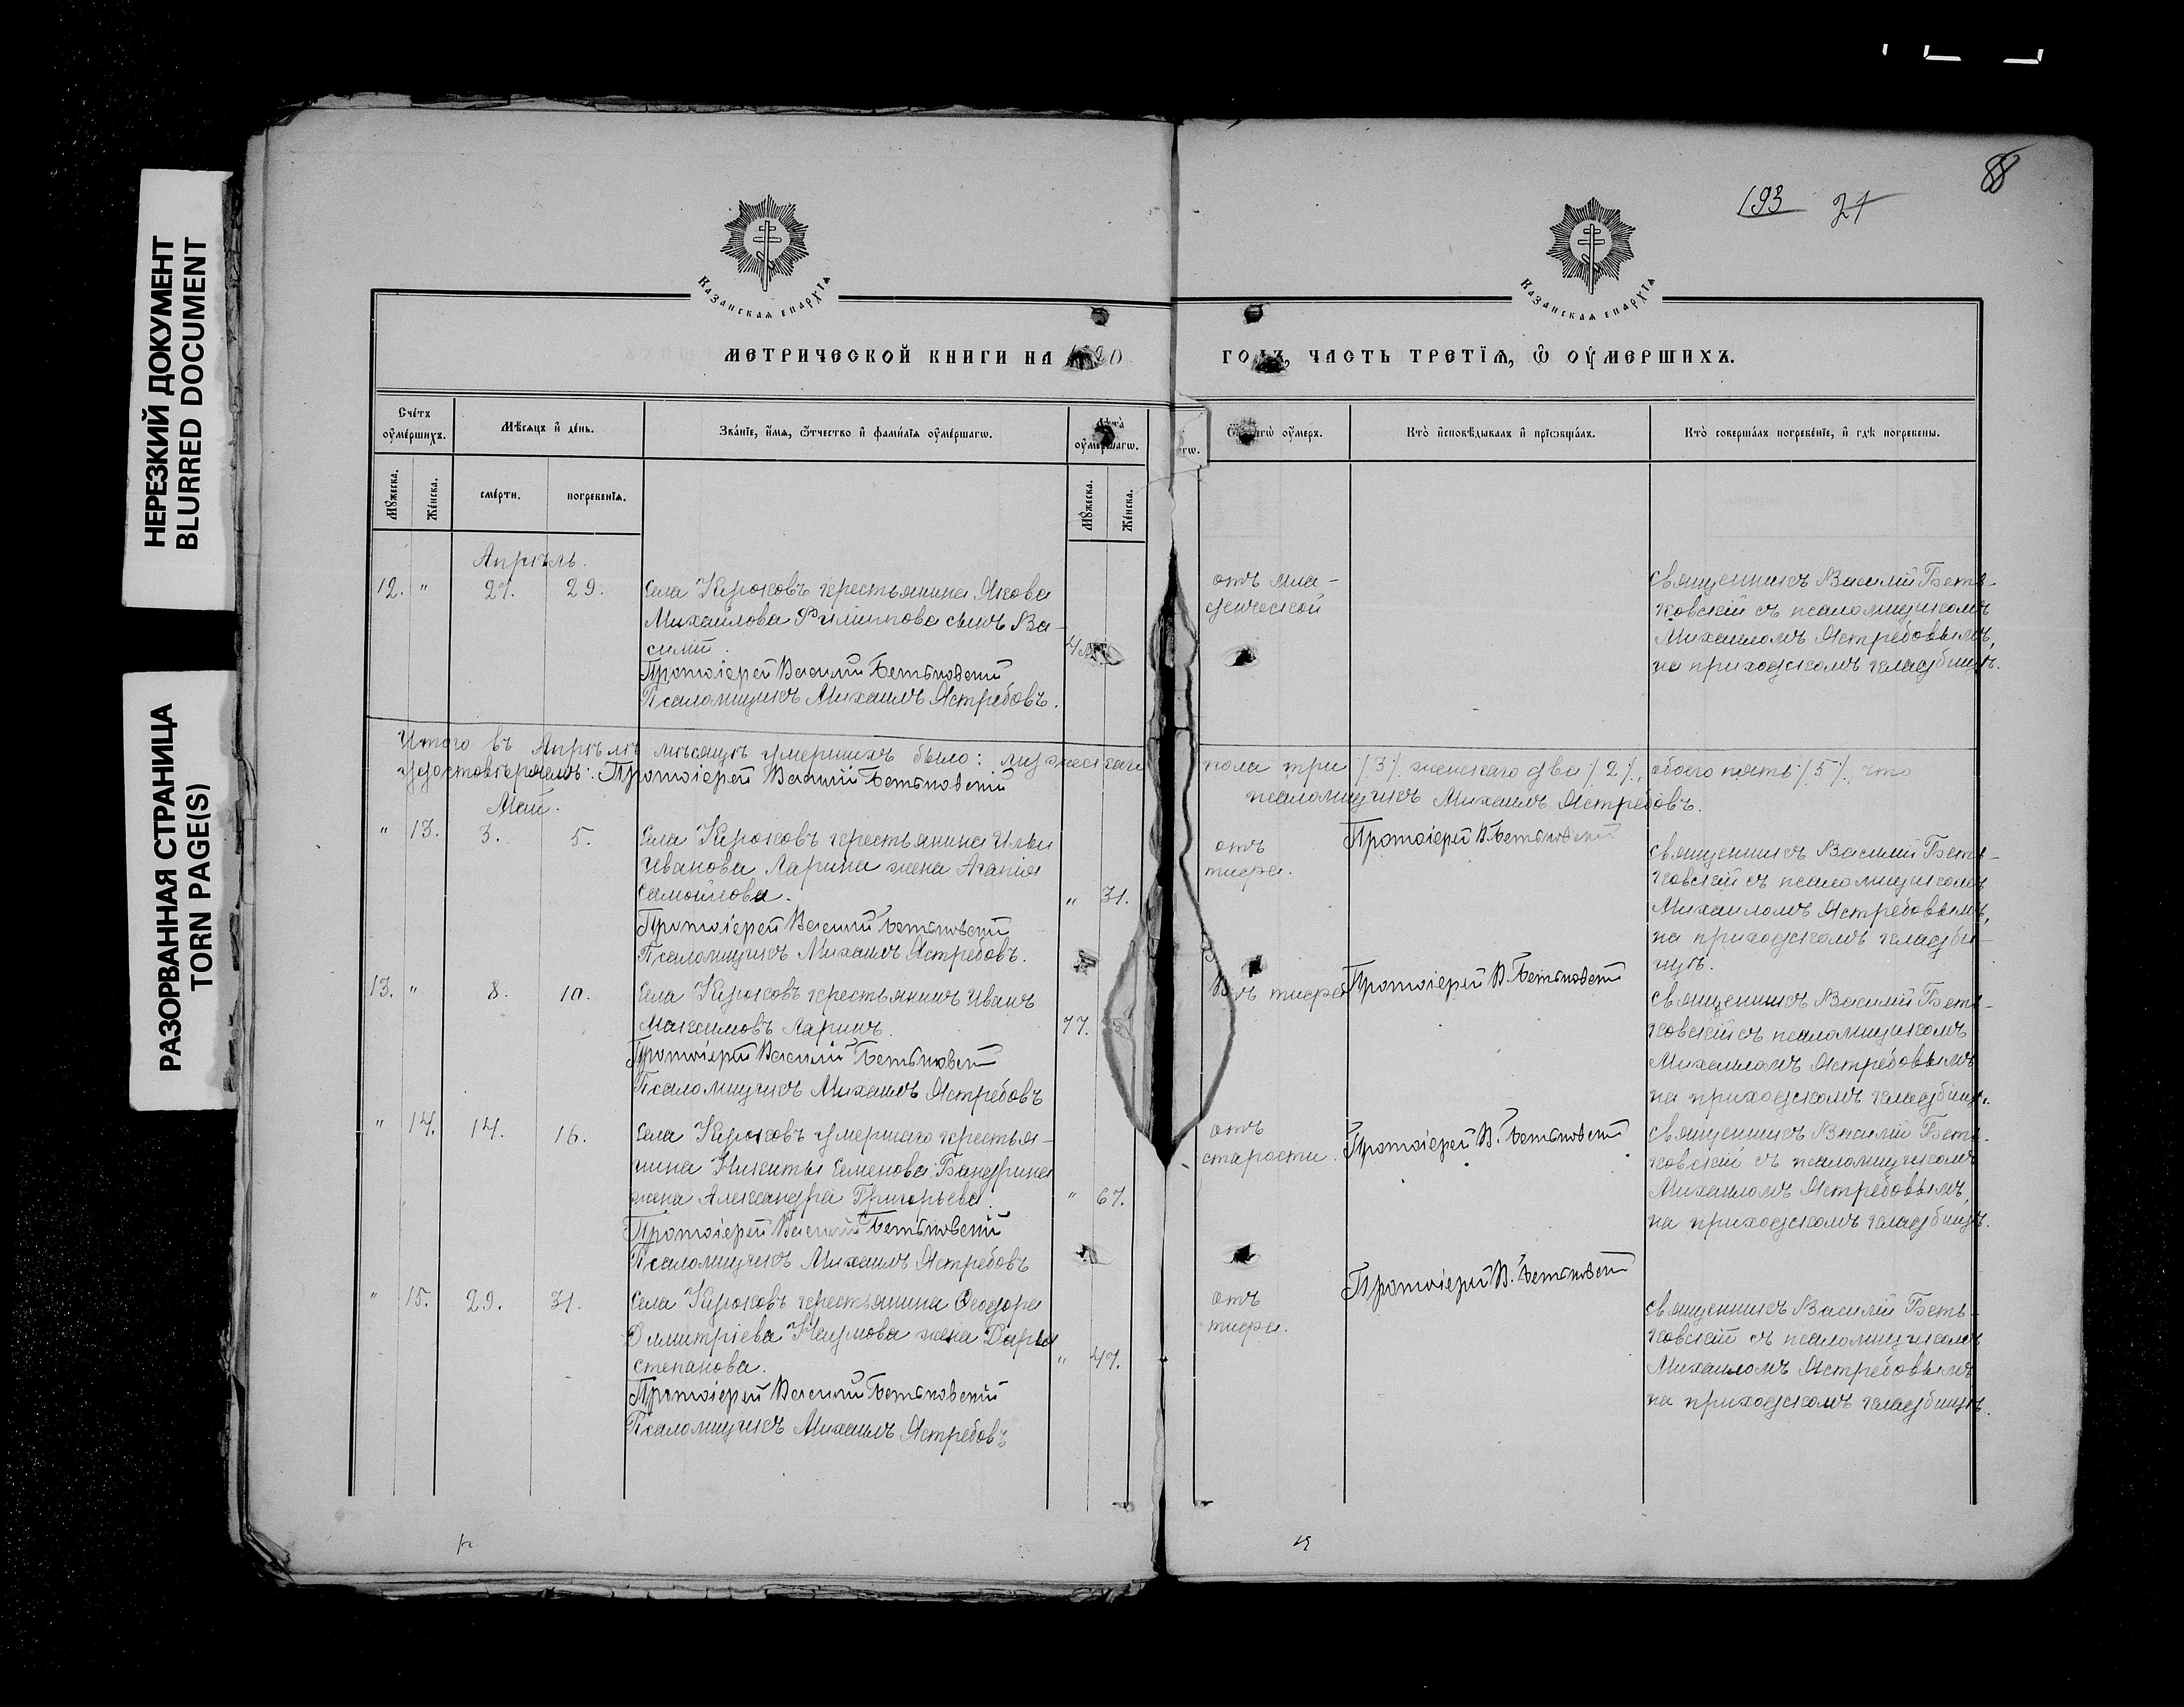 НЕРЕЗКИЙ ДОКУМЕНТ
BLURRED DOCUMENT
РАЗОРВАННАЯ СТРАНИЦА
TORN PAGE(S)
193 21
88
Казанская епархїѧ
Казанская епархїѧ
МЕТРИЧЕСКОЙ КНИГИ НА 1920
ГОДЪ, ЧАСТЬ ТРЕТЇѦ, Ѿ ОУМЕРШИХЪ.
Счетъ оумершихъ.
Мѣсяцъ и день.
Званїе, имѧ, ѿчество и фамилїѧ оумершагѡ.
Лѣта оумершагѡ.
Ѿ чегѡ оумеръ.
Кто исповѣдывалъ и прїѡбщалъ.
Кто совершалъ погребенїе, и гдѣ погребены.
Мужеска.
Женска.
смерти.
погребенїѧ.
Мужеска.
Женска.
Апрѣль.
12. " 27. 29.
Села Кирюковъ крестьянина Якова
Михайлова Филиппова сынъ Ва-
силій.
Протоіерей Василій Бетьковскій
Псаломщикъ Михаилъ Ястребовъ.
отъ мла-
денческой
Священникъ Василій Беть-
ковскій съ псаломщикомъ
Михаиломъ Ястребовымъ,
на приходскомъ кладбищѣ.
Итого въ Апрѣлѣ мѣсяцѣ умершихъ было: мужескаго пола три /3/, женскаго два /2/, обоего пять /5/, что
удостовѣряемъ: Протоіерей Василій Бетьковскій
псаломщикъ Михаилъ Ястребовъ.
Май.
" 13. 3. 5.
Села Кирюковъ крестьянина Ильи
Иванова Ларина жена Агапія
Самойлова.
" 31.
Протоіерей Василій Бетьковскій
Псаломщикъ Михаилъ Ястребовъ.
отъ
тифа.
Протоіерей В. Бетьковскій
Священникъ Василій Беть-
ковскій съ псаломщикомъ
Михаиломъ Ястребовымъ,
на приходскомъ кладби-
щѣ.
13. " 8. 10.
Села Кирюковъ крестьянинъ Иванъ
Максимовъ Ларинъ.
77.
Протоіерей Василій Бетьковскій
Псаломщикъ Михаилъ Ястребовъ
отъ тифа
Протоіерей В. Бетьковскій
Священникъ Василій Беть-
ковскій съ псаломщикомъ
Михаиломъ Ястребовымъ
на приходскомъ кладбищѣ.
" 14. 14. 16.
Села Кирюковъ умершаго крестья-
нина Никиты Семенова Бандрина
жена Александра Григорьева.
" 67.
Протоіерей Василій Бетьковскій
Псаломщикъ Михаилъ Ястребовъ
отъ
старости.
Протоіерей В. Бетьковскій
Священникъ Василій Беть-
ковскій съ псаломщикомъ
Михаиломъ Ястребовымъ,
на приходскомъ кладбищѣ.
" 15. 29. 31.
Села Кирюковъ крестьянина Ѳеодора
Димитріева Наумова жена Дарья
Степанова.
" 47.
Протоіерей Василій Бетьковскій
Псаломщикъ Михаилъ Ястребовъ
отъ
тифа.
Протоіерей В. Бетьковскій
Священникъ Василій Беть-
ковскій съ псаломщикомъ
Михаиломъ Ястребовымъ
на приходскомъ кладбищѣ.